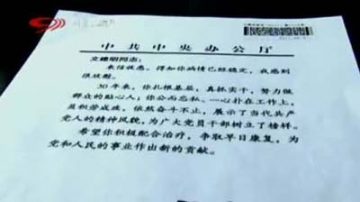 中共中央办公厅
文建明同志：
来信收悉。得知你病情已经稳定，我感到
很欣慰。
30年来，你扎根基层，真抓实干，努力做
群众的贴心人；你公而忘私，一心扑在工作上，
虽积劳成疾，依然奋斗不止，展示了当代共产
党人的精神风貌，为广大党员干部树立了榜样。
希望你积极配合治疗，争取早日康复，为
党和人民的事业作出新的贡献。